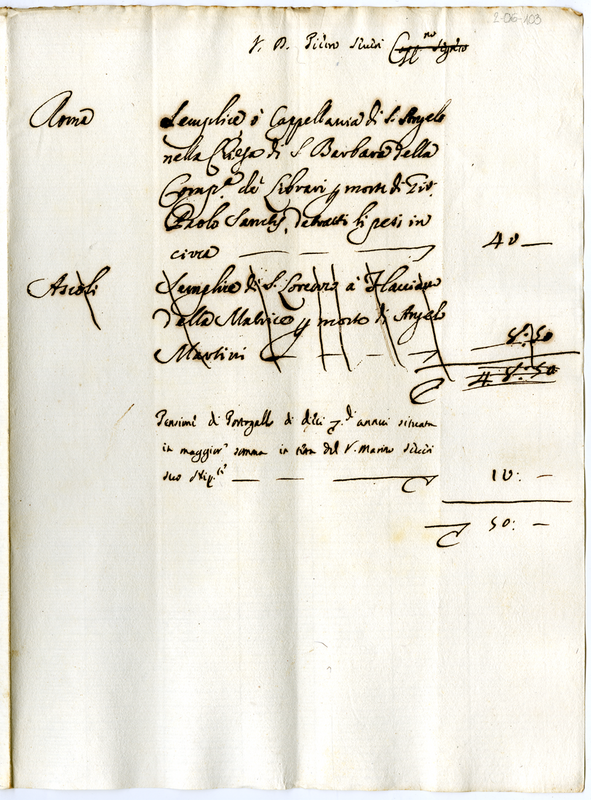 2-06-103
V. D. Pietro
Roma
Semplice ò Cappellania di S. Angelo
nella Chiesa di S. Barbara della
Comp.ª de Librari p morte di Gio:
Paolo detratti li pesi in
circa 40 —
Ascoli
Semplice di S. Lorenzo a Flaviano
della Matrice p morte di Angelo
Martini 8:50
8:50
Pensione di Portogallo di dieci annui situata
in maggior somma in del V. Marino
suo 10: —
50: —